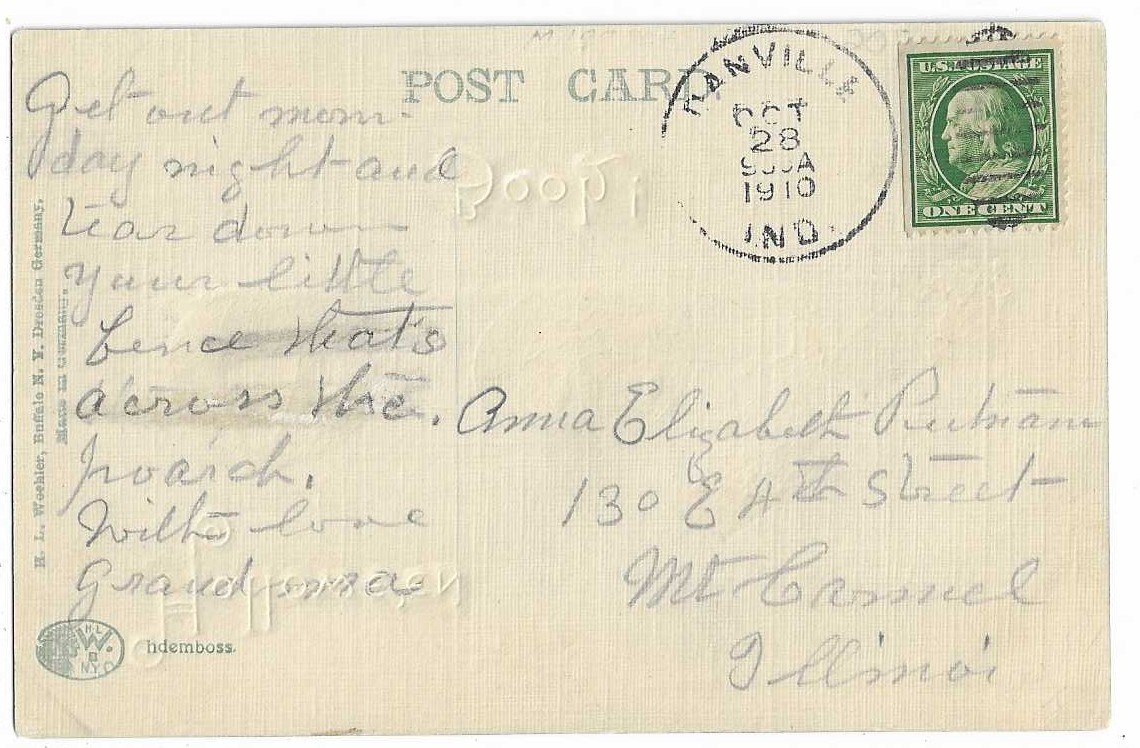 POST CARD
DANVILLE
OCT
28
1910
IND.
U.S. POSTAGE
ONE CENT
Get out mon-
day night and
tear down
your little
fence that's
across the
poarch.
With love
Grandma
Anna Elizabeth Putnam
130 E 4th Street
Mt Carmel
Illinoi
H. L. Woehler, Buffalo N. Y. Dresden Germany.
Made in Germany.
HL
W.
B
NYO
hdemboss.
A good
Halloween